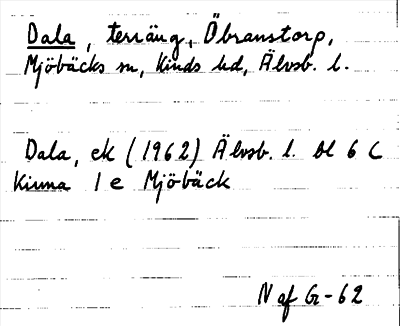 Dala, terräng, Öbranstorp,
Mjöbäcks sn, Kinds hd, Älvsb. l.
Dala, ek (1962) Älvsb. l. bl 6 C
Kinna 1 e Mjöbäck
N af G-62